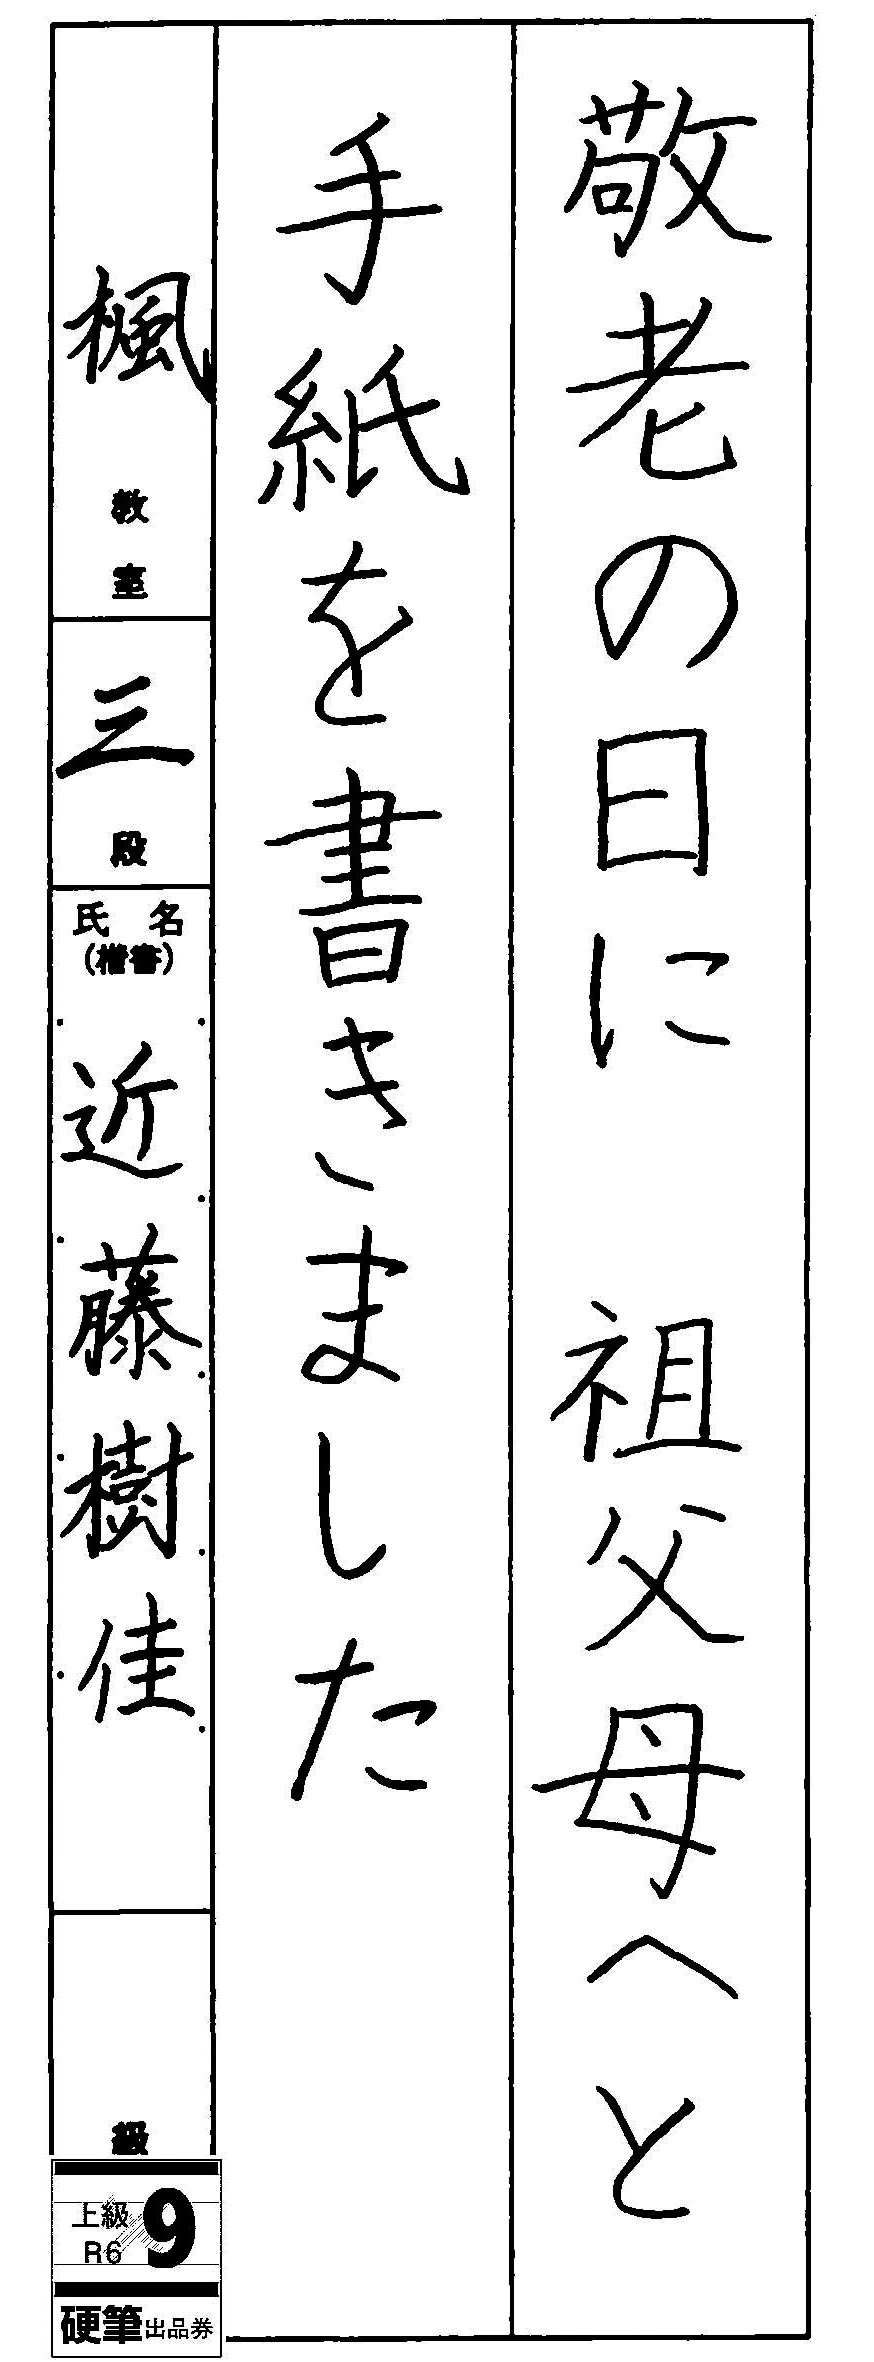 敬老の日に　祖父母へと
手紙を書きました
楓教室
三段
氏名
(楷書)
近藤樹佳
級
上級
R6
9
硬筆出品券